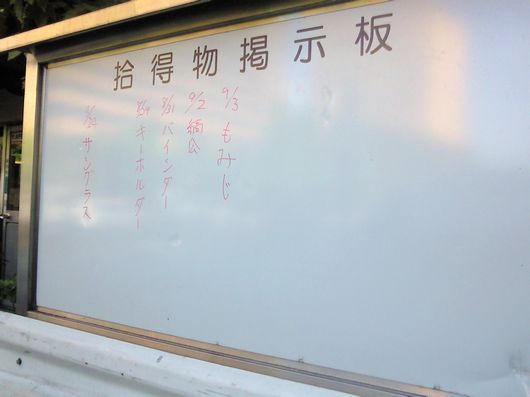 拾得物掲示板
9/3 もみじ
9/2 猫
8/31 バインダー
8/24 キーホルダー
サングラス